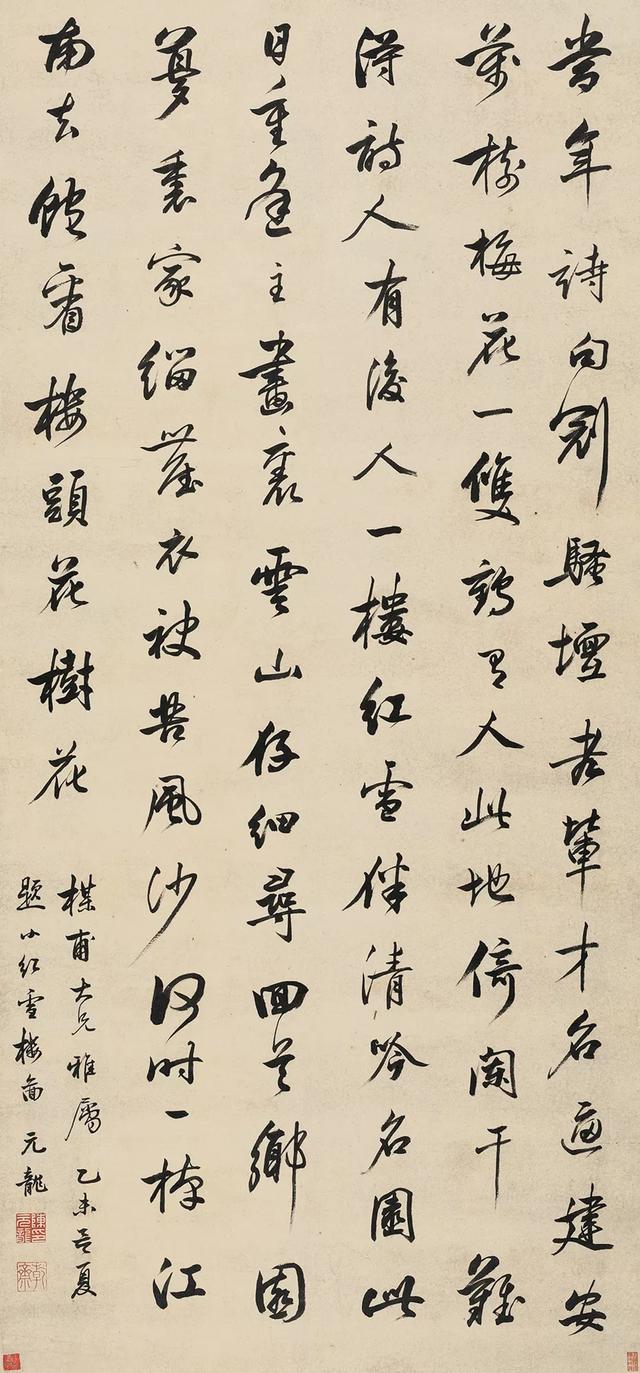 當年詩句冠騷壇老輩才名逼建安
萬樹梅花一雙鶴有人此地倚闌干難
得詩人有後人一樓紅雪伴清吟名園此
日重逢主畫裏雲山仔細尋回首鄉園
夢裏家緇塵衣袂苦風沙何時一棹江
南去飽看樓頭花樹花
楳甫大兄雅屬乙未首夏
題小紅雪樓圖元龍